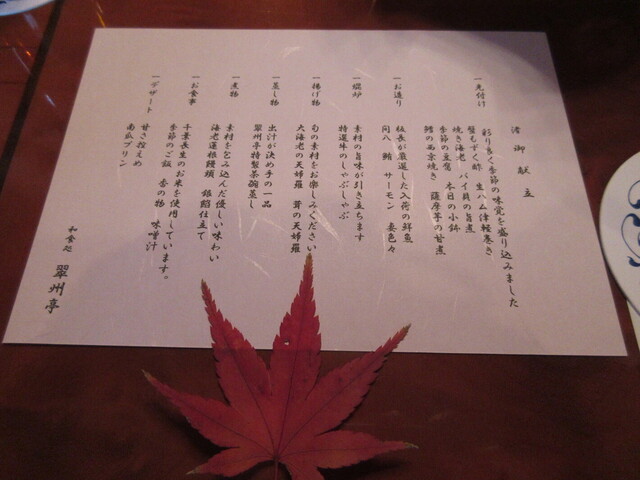 渚御献立
一 先付け
彩り良く季節の味覚を盛り込みました
蟹もずく酢 生ハム津軽巻き
焼き海老 バイ貝の旨煮
季節の豆腐 本日の小鉢
鱈の西京焼き 薩摩芋の甘煮
一 お造り
板長が厳選した入荷の鮮魚
間八 鮪 サーモン 妻色々
一 焜炉
素材の旨味が引き立ちます
特選牛のしゃぶしゃぶ
一 揚げ物
旬の素材をお楽しみください
大海老の天婦羅 茸の天婦羅
一 蒸し物
出汁が決め手の一品
翠州亭特製茶碗蒸し
一 煮物
素材を包み込んだ優しい味わい
海老蓮根饅頭 銀餡仕立て
一 お食事
千葉長生のお米を使用しています。
季節のご飯 香の物 味噌汁
一 デザート
甘さ控えめ
南瓜プリン
和食処 翠州亭